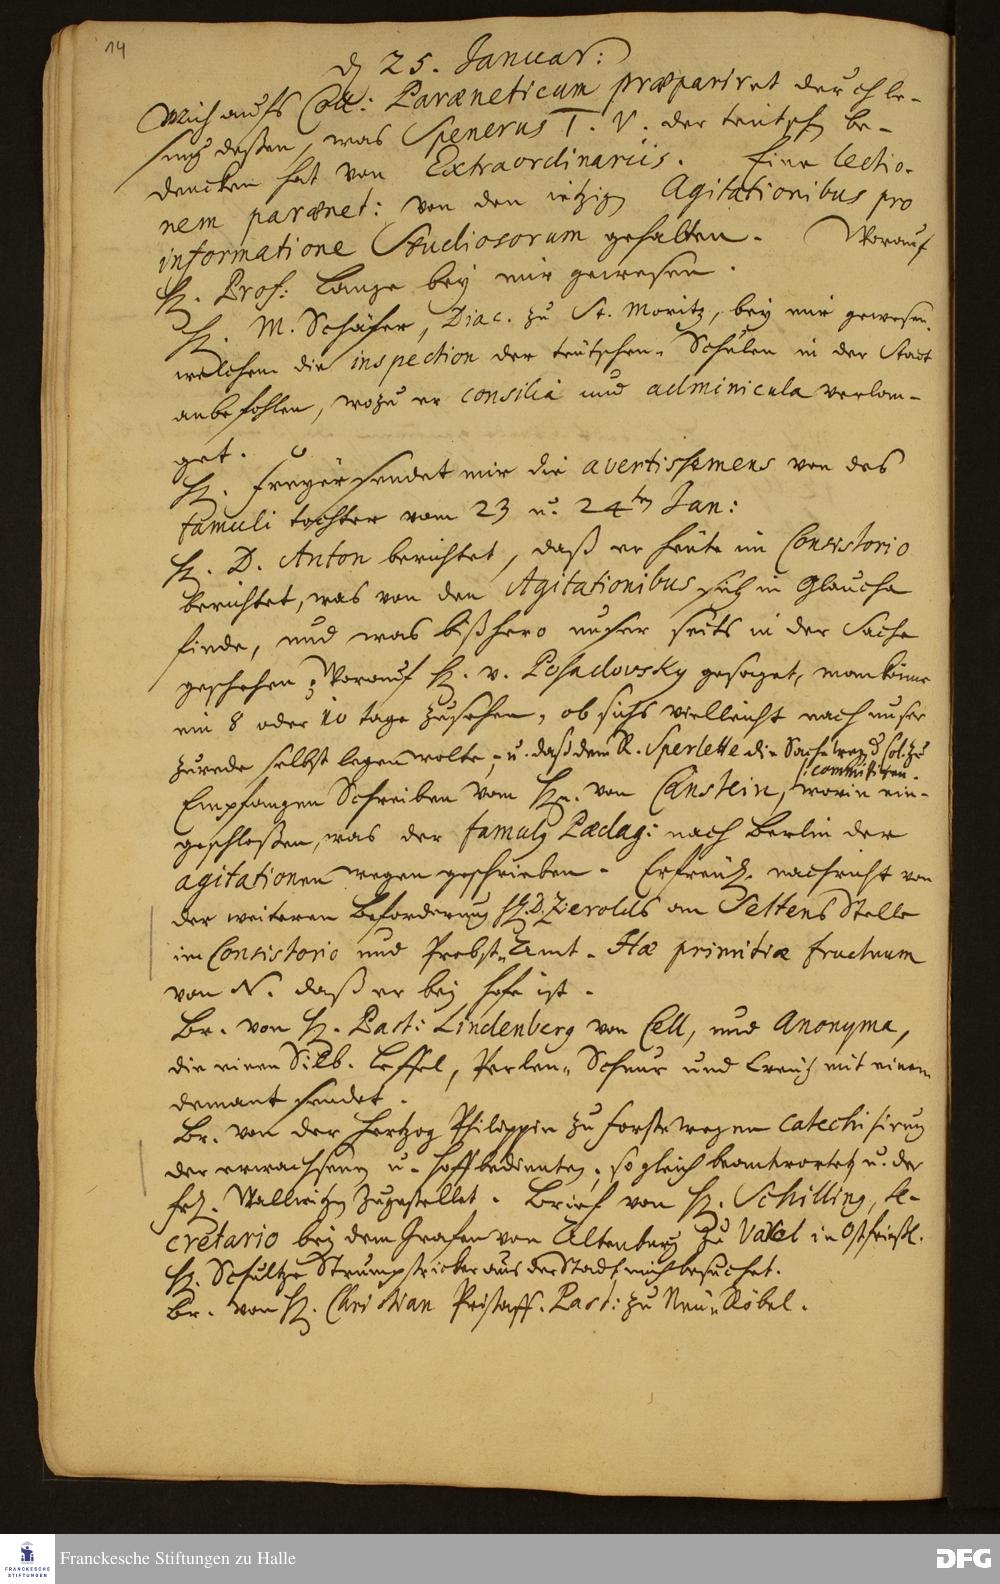 14
d. 25. Januar:
Mich aufs Coll: Paræneticum præpariret durch le-
sung deßen, was Spenerus T. V. der teutsch. be-
dencken hat von Extraordinariis. Eine lectio-
nem parænet: von den ietzigen Agitationibus pro
informatione Studiosorum gehalten. Worauf
H. Prof: Lange bey mir gewesen.
H. M. Schäfer, Diac. zu St. Moritz, bey mir gewesen,
welchem die inspection der teutschen Schulen in der Stadt
anbefohlen, wozu er consilia und adminicula verlan-
get.
H. Freyer sendet mir die avertissemens von des
famuli tochter vom 23 u. 24ten Jan:
H. D. Anton berichtet, daß er heute im Consistorio
berichtet, was von den Agitationibus sich in Glaucha
finde, und was bißhero unser seits in der Sache
geschehen; Worauf H. v. Posadovsky gesaget, man könne
ein 8 oder 10 tage zusehen, ob sichs vielleicht nach unser
zurede selbst legen wolte, u. daß dem R. Sperlette die Sache sol. zu
committiren.
Empfangen Schreiben vom Hn. von Canstein, worin ein-
geschloßen, was der famulus Pædag: nach Berlin der
agitationen wegen geschrieben. Erfreul. nachricht von
der weiteren Beforderung H. D. Zierolds an Seltens Stelle
im Consistorio und Probst-Amt. Hæ primitiæ fructuum
von N. daß er bey hofe ist.
Br. von H. Past: Lindenberg von Cell, und Anonyma,
die einen Silb. Leffel, Perlen-Schnur und Creutz mit einem
demant sendet.
Br. von der Hertzog Philippin zu Forste wegen catechisirung
der erwachsenen u. Hoffbedienten, so gleich beantwortet u. der
Frl. Wallwitzen zugestellet. Brief von H. Schilling, Se-
cretario bey dem Grafen von Altenburg zu Varel in Ostfriesl.
H. Schultze Strumpstricker aus der Stadt mich besuchet.
Br. von H. Christian Pristaff. Past: zu Neu-Röbel.
Franckesche Stiftungen zu Halle
FRANCKESCHE
STIFTUNGEN
DFG